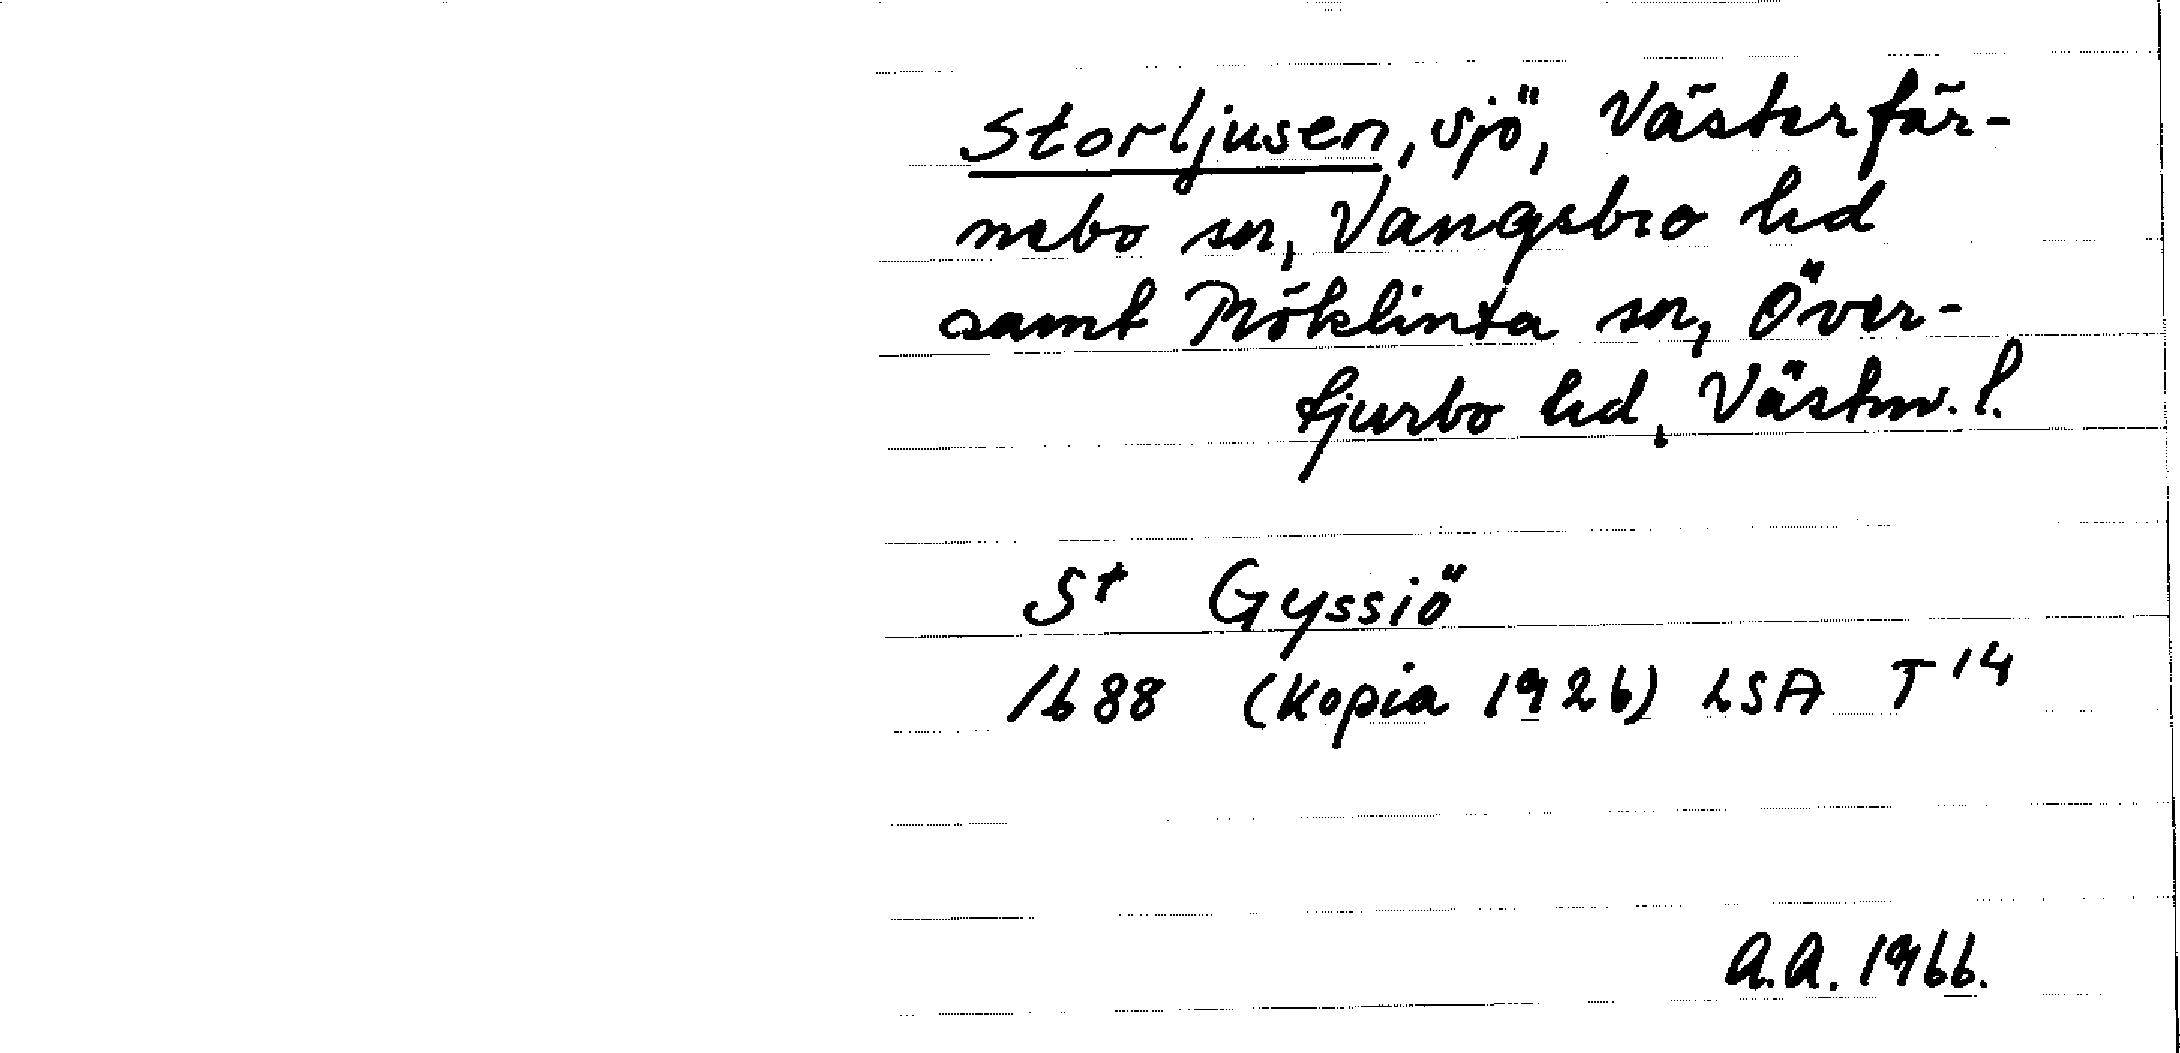 Storljusen, sjö, Västerfär-
nebo sn, Vangsbro hd
samt Möklinta sn, Över-
tjurbo hd, Västm. l.
St Gyssiö
1688 (Kopia 1926) LSA T 14
A.A. 1966.